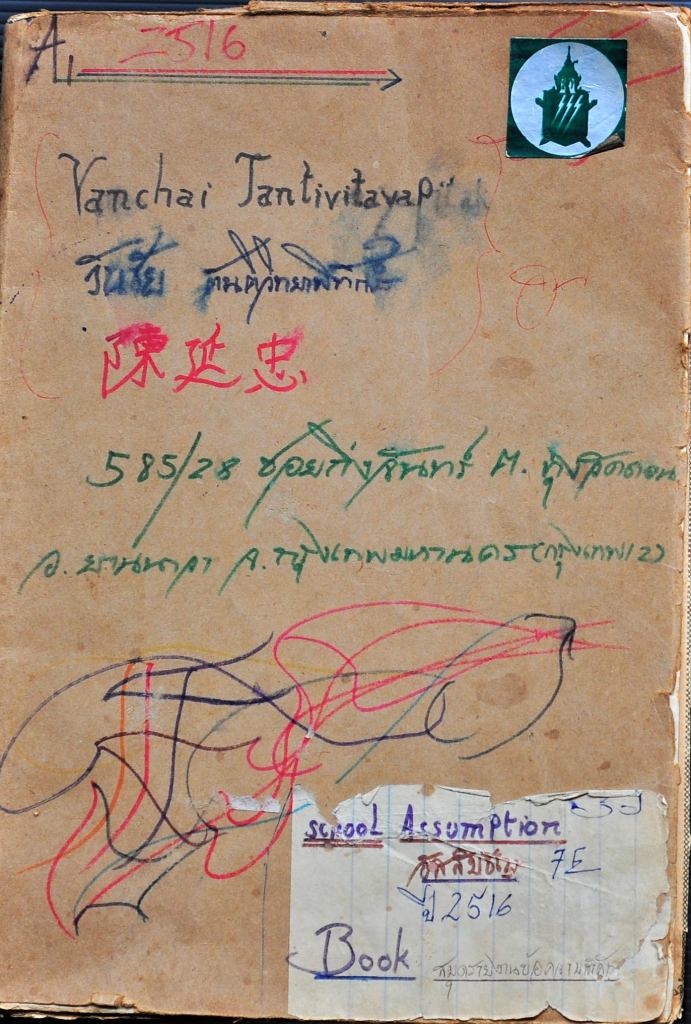 A1 2516
Vanchai Tantivitayapi
วันชัย ตันติวิทยาพิทักษ์
陳延忠
585/28 ซอยกิ่งจันทร์ ต. ทุ่งวัดดอน
อ. ยานนาวา จ. กรุงเทพมหานคร (กรุงเทพ 12)
School Assumption
อัสสัมชัญ 7E
ปี 2516
Book